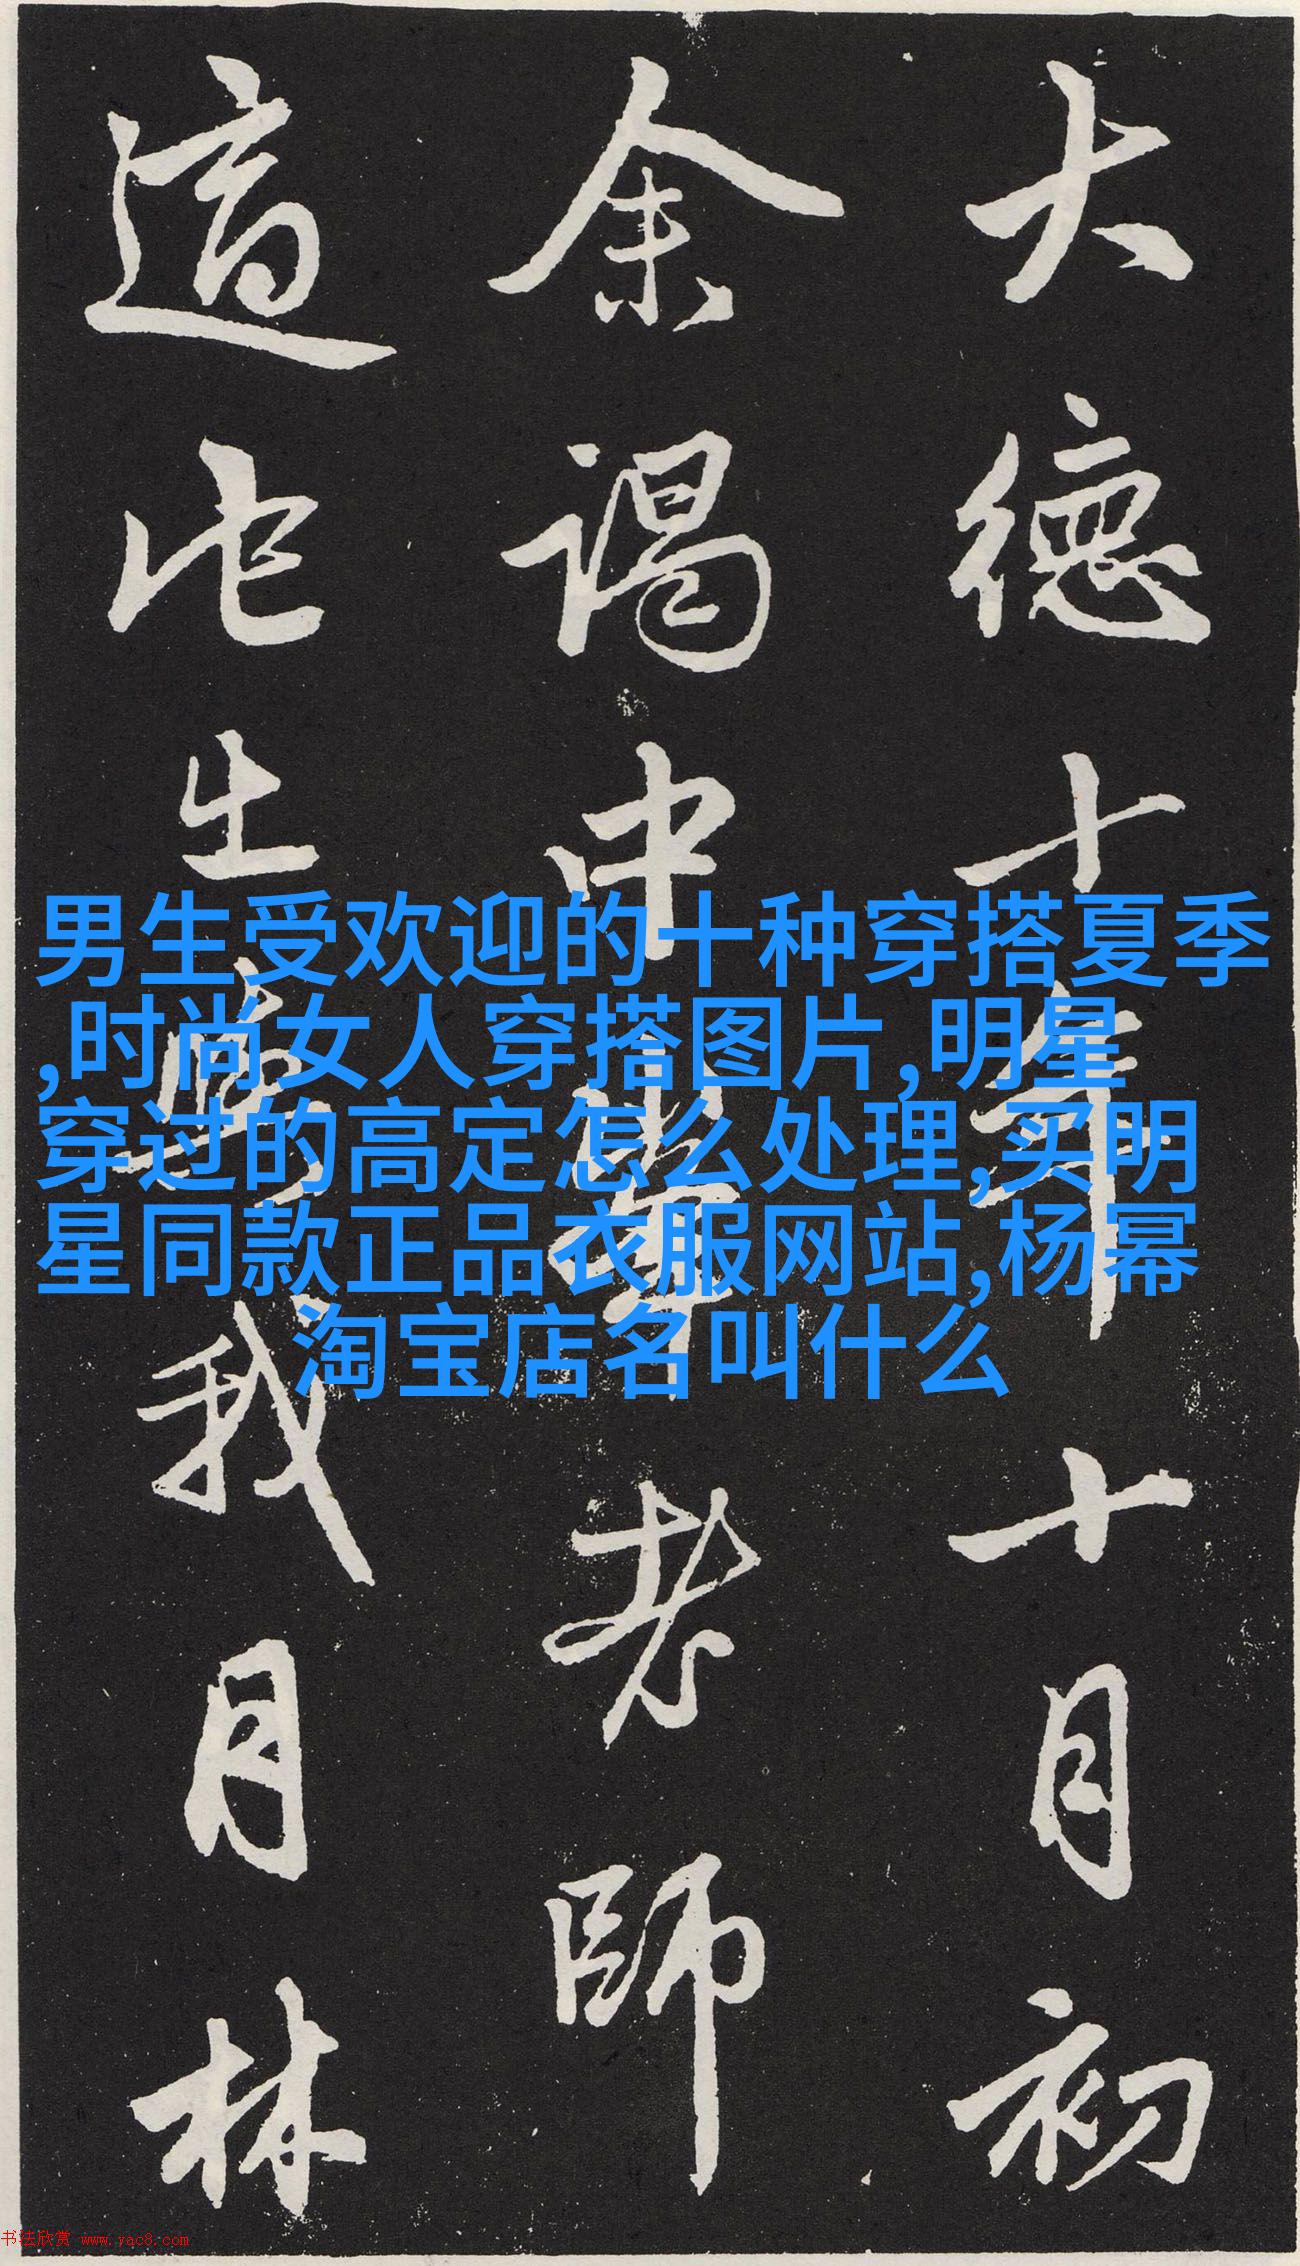 大德十年十月初
余謁中峯老師
適此生與我月林
男生受欢迎的十种穿搭夏季
,时尚女人穿搭图片,明星
穿过的高定怎么处理,买明
星同款正品衣服网站,杨幂
淘宝店名叫什么
书法欣赏 www.yac8.com